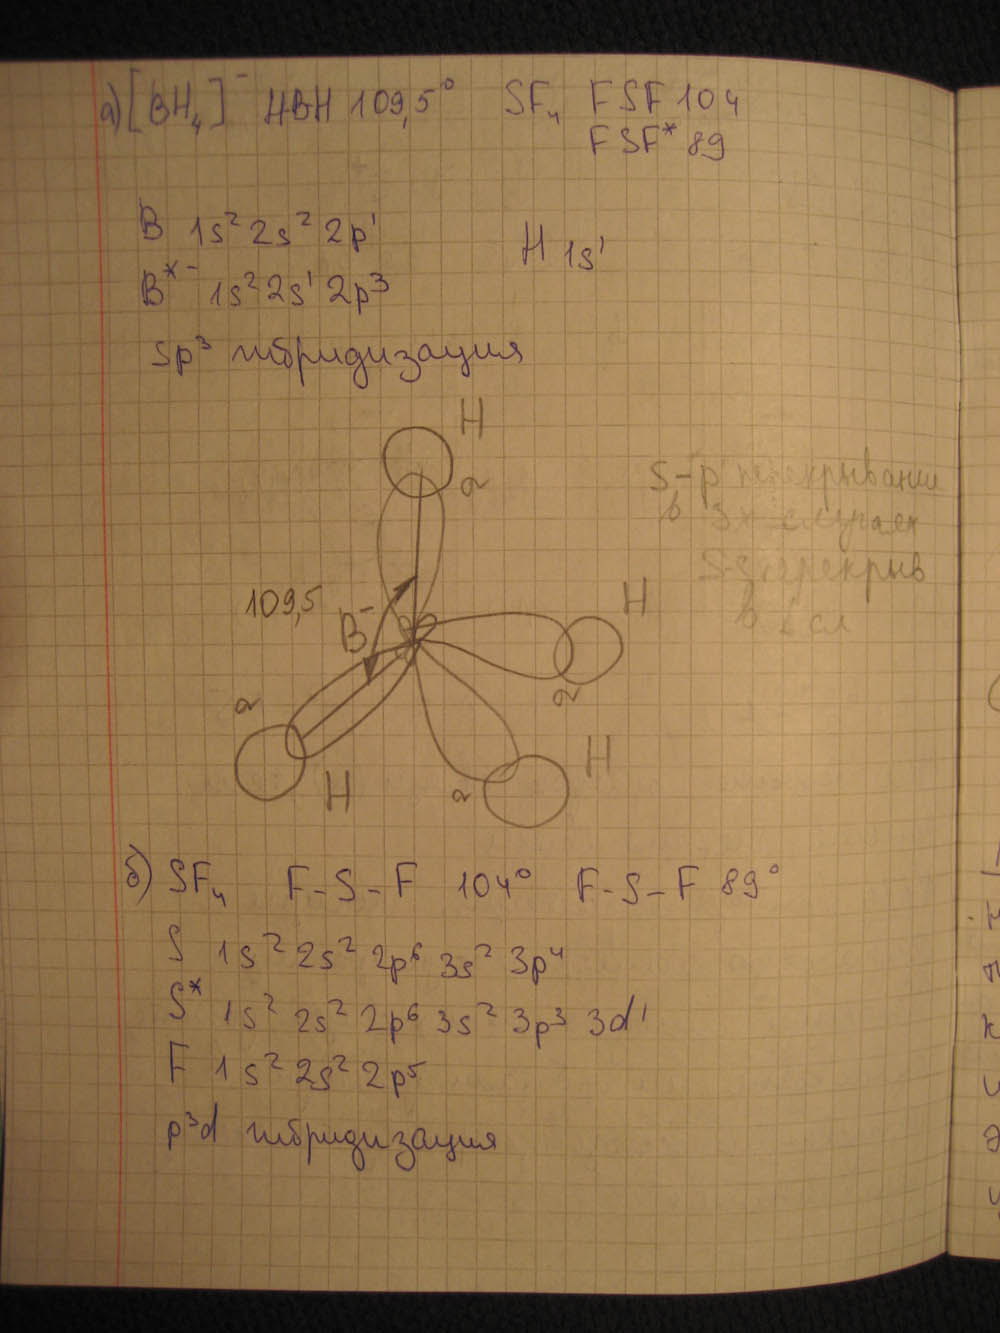 а) [BH₄]⁻ HBH 109,5° SF₄ FSF 104
FSF* 89
B 1s² 2s² 2p¹
H 1s¹
B*⁻ 1s² 2s¹ 2p³
sp³ гибридизация
H
σ
s-p перекрывании
в 3х случаях
s-s перекрыв
в сл
109,5
B⁻
H
σ
σ
H
H
σ
б) SF₄ F-S-F 104° F-S-F 89°
S 1s² 2s² 2p⁶ 3s² 3p⁴
S* 1s² 2s² 2p⁶ 3s² 3p³ 3d¹
F 1s² 2s² 2p⁵
p³d гибридизация